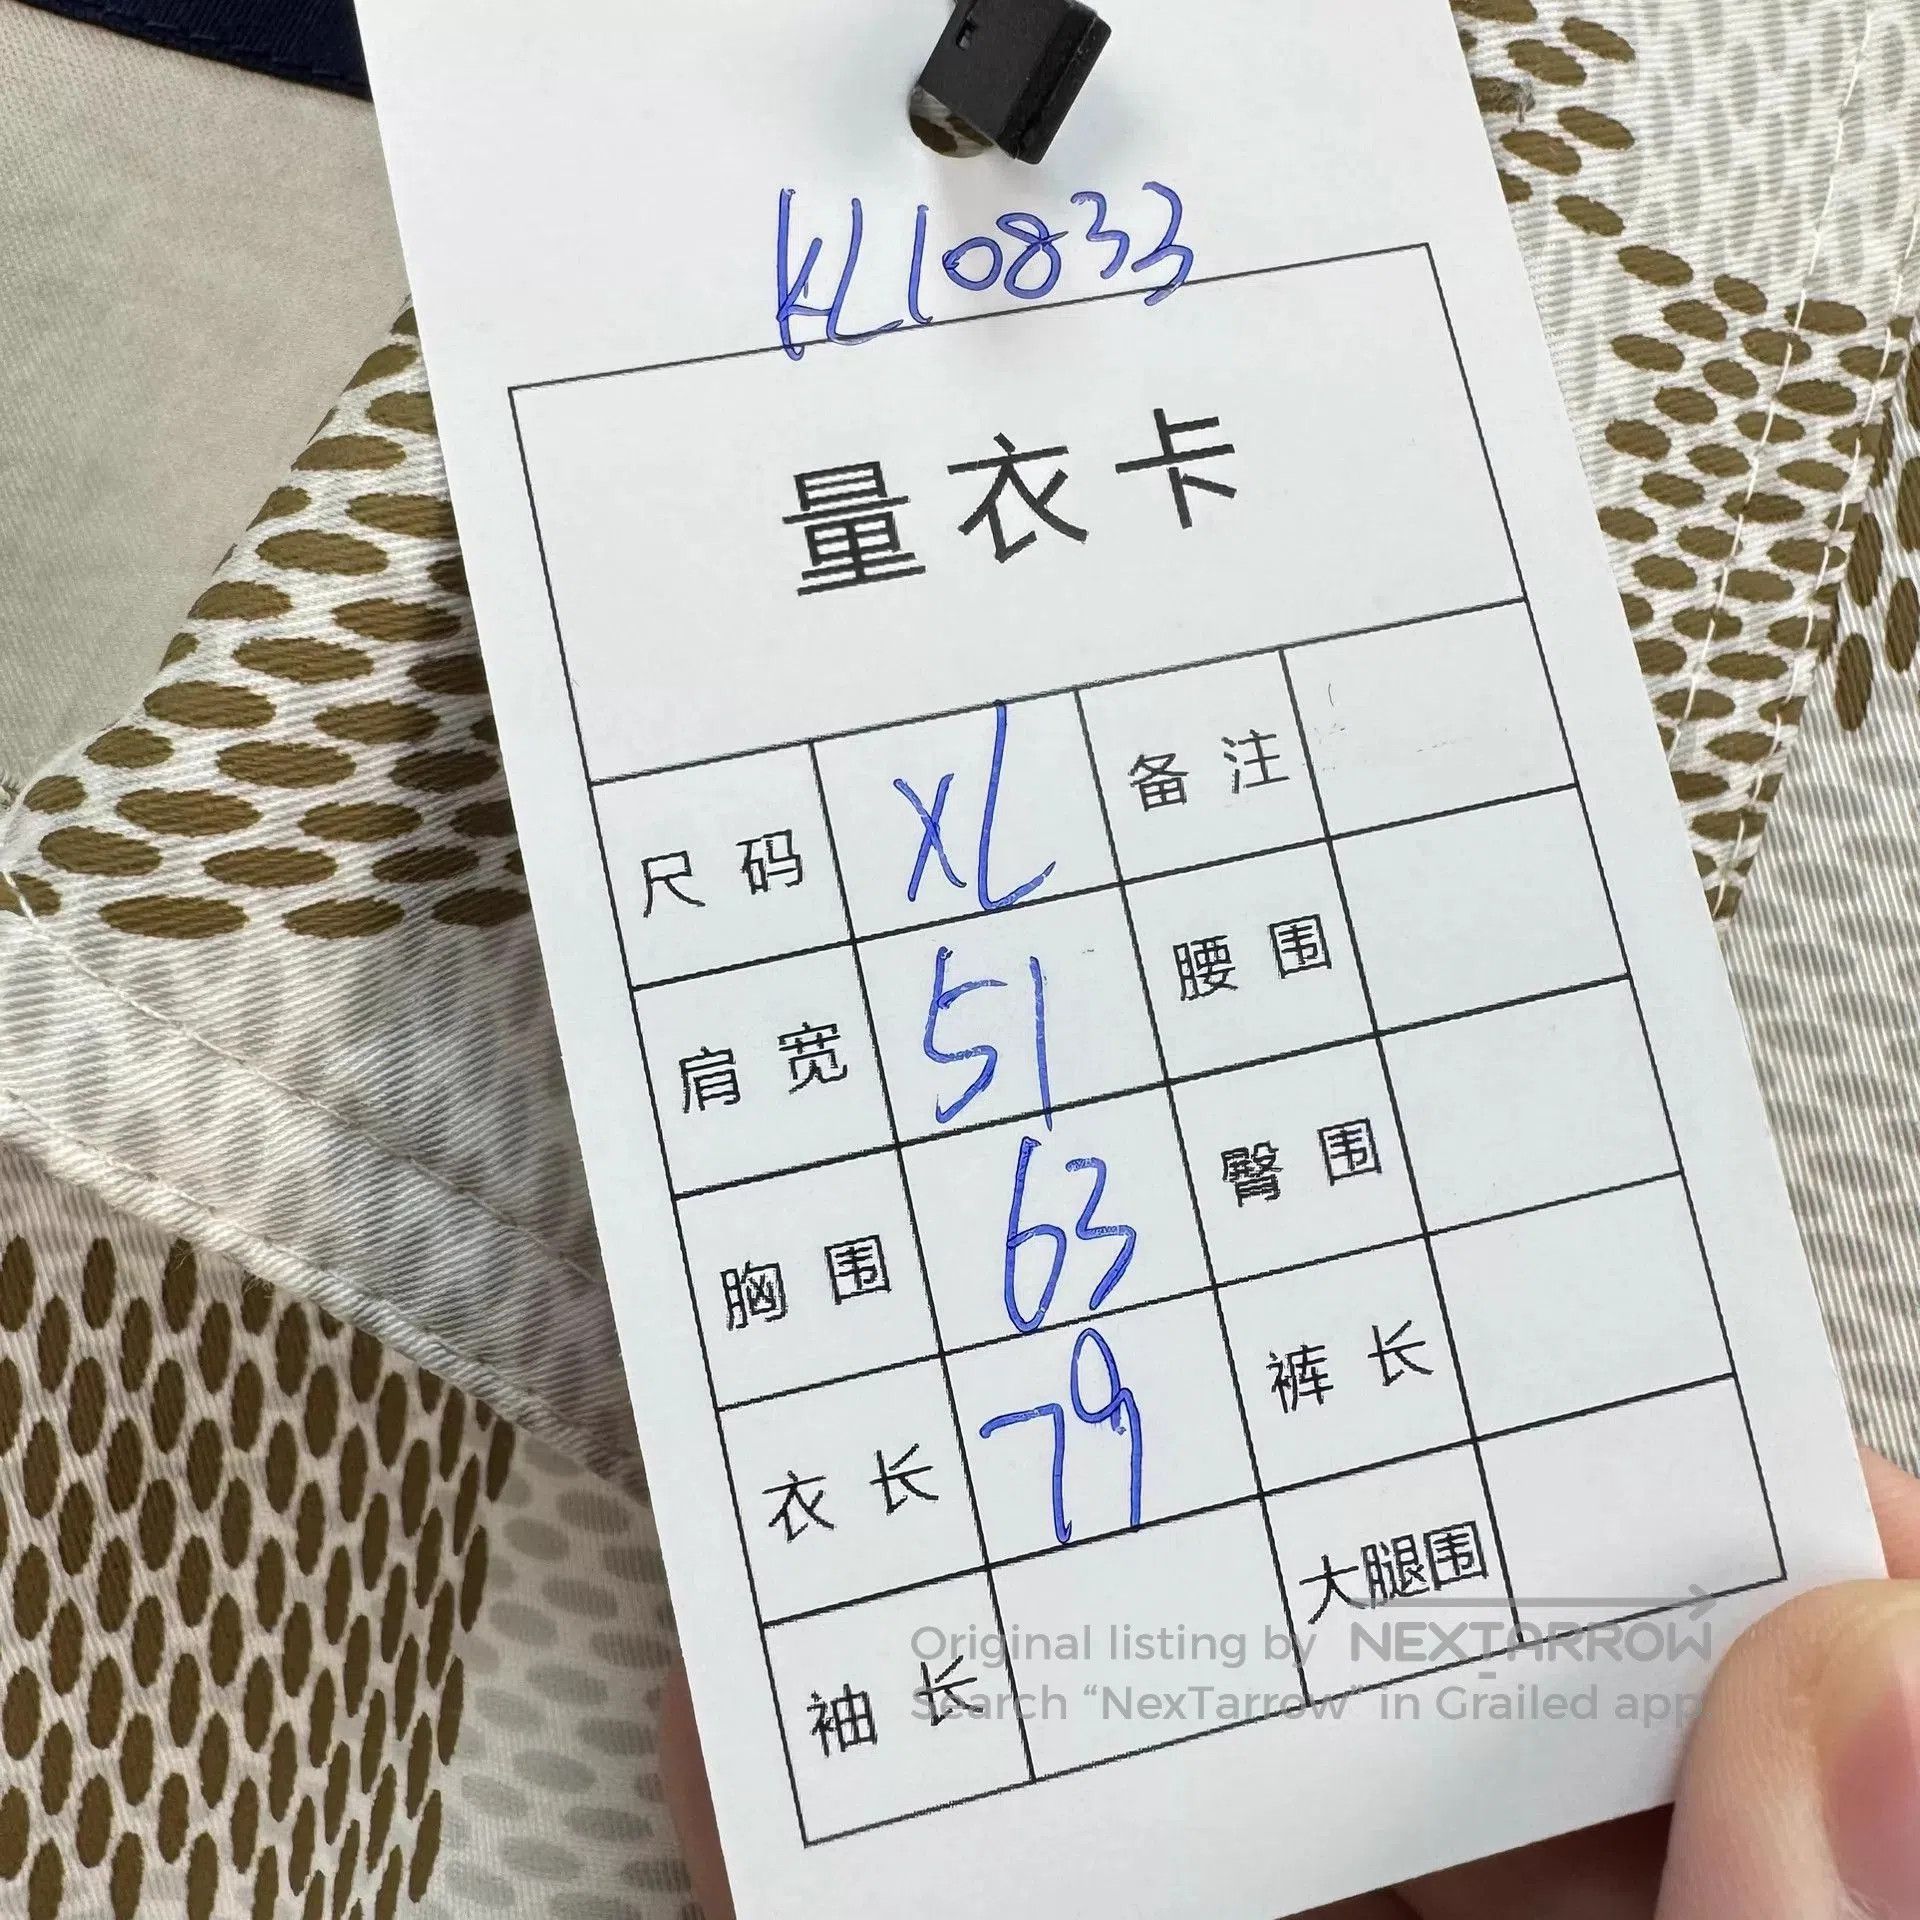 KL10833
量衣卡
尺码 XL 备注
肩宽 51 腰围
胸围 63 臀围
衣长 79 裤长
袖长 大腿围
Original listing by NEXTARROW
Search “NexTarrow” in Grailed app